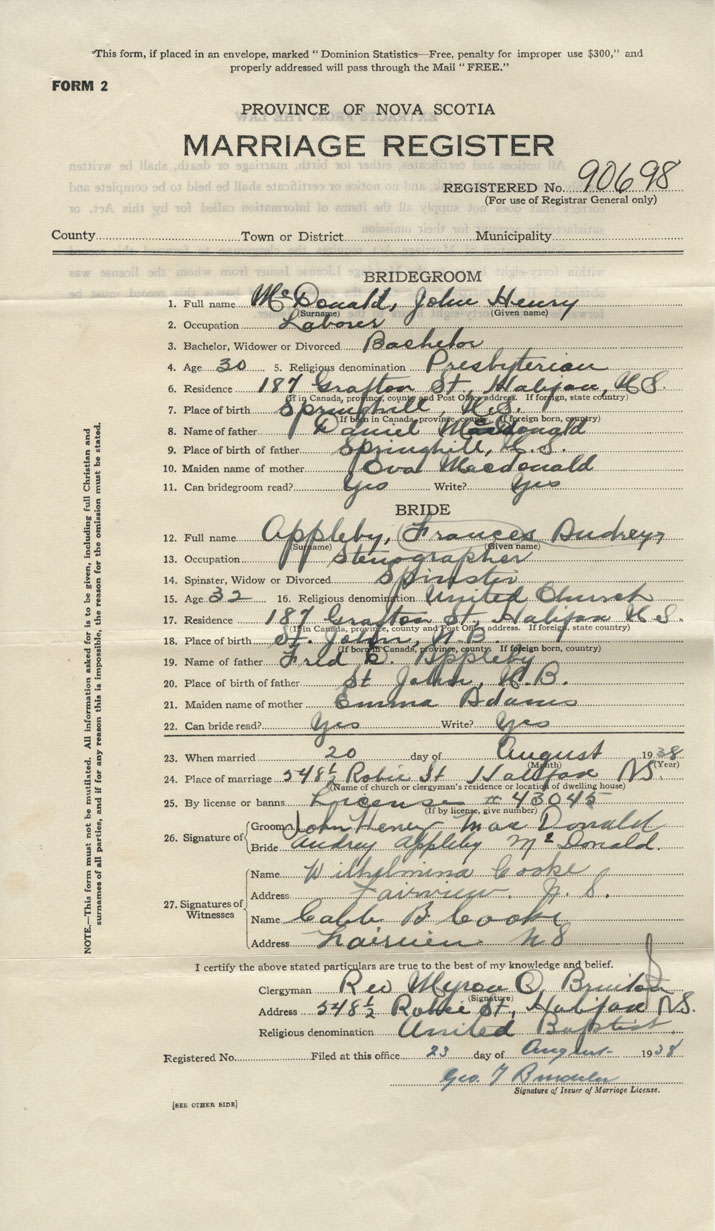 "This form, if placed in an envelope, marked "Dominion Statistics—Free, penalty for improper use $300," and
properly addressed will pass through the Mail "FREE."
FORM 2
PROVINCE OF NOVA SCOTIA
MARRIAGE REGISTER
REGISTERED No. 90698
(For use of Registrar General only)
County Town or District Municipality
BRIDEGROOM
1. Full name McDonald, John Henry
(Surname) (Given name)
2. Occupation Laborer
3. Bachelor, Widower or Divorced Bachelor
4. Age 30 5. Religious denomination Presbyterian
6. Residence 187 Grafton St, Halifax, N.S.
(If in Canada, province, county and Post Office address. If foreign, state country)
7. Place of birth Springhill, N.S.
(If born in Canada, province, county. If foreign born, country)
8. Name of father Daniel Macdonald
9. Place of birth of father Springhill, N.S.
10. Maiden name of mother Eva Macdonald
11. Can bridegroom read? Yes Write? Yes
BRIDE
12. Full name Appleby, Frances Audrey
(Surname) (Given name)
13. Occupation Stenographer
14. Spinster, Widow or Divorced Spinster
15. Age 32 16. Religious denomination United Church
17. Residence 187 Grafton St, Halifax N.S.
(If in Canada, province, county and Post Office address. If foreign, state country)
18. Place of birth St. John, N.B.
(If born in Canada, province, county. If foreign born, country)
19. Name of father Fred Appleby
20. Place of birth of father St John, N.B.
21. Maiden name of mother Emma Adams
22. Can bride read? Yes Write? Yes
23. When married 20 day of August 1938
(Month) (Year)
24. Place of marriage 548½ Robie St Halifax NS.
(Name of church or clergyman's residence or location of dwelling house)
25. By license or banns License # 43045
(If by license, give number)
26. Signature of Groom John Henry MacDonald
Bride Audrey Appleby McDonald.
27. Signatures of Witnesses
Name Wilhelmina Cooke
Address Fairview. N.S.
Name B Cooke
Address Fairview N S
I certify the above stated particulars are true to the best of my knowledge and belief.
Clergyman Rev Myron O. Brinton
(Signature)
Address 548½ Robie St, Halifax NS.
Religious denomination United Baptist.
Registered No. Filed at this office 23 day of August 1938
Geo. T
Signature of Issuer of Marriage License.
[SEE OTHER SIDE]
NOTE.—This form must not be mutilated. All information asked for is to be given, including full Christian and
surnames of all parties, and if for any reason this is impossible, the reason for the omission must be stated.